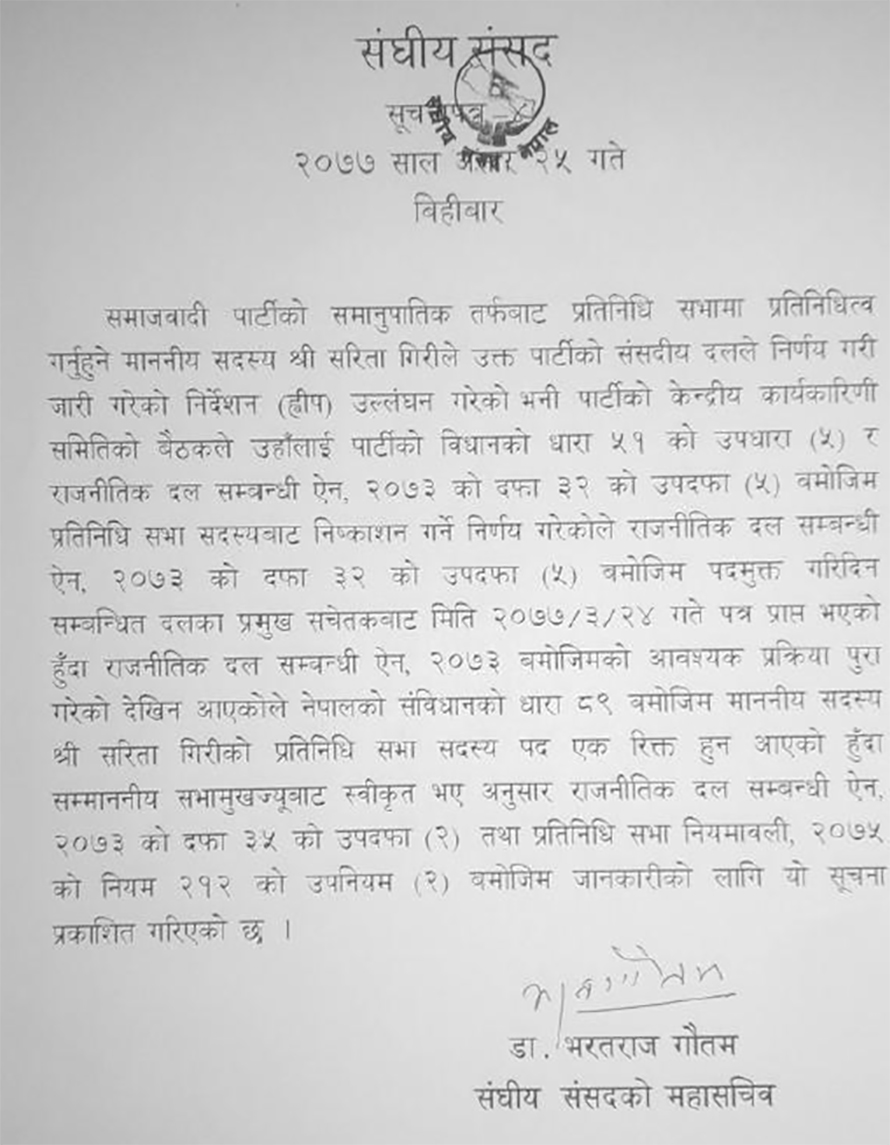 संघीय संसद
सूचनापत्र
२०७७ साल असार २५ गते
बिहीबार
समाजवादी पार्टीको समानुपातिक तर्फबाट प्रतिनिधि सभामा प्रतिनिधित्व
गर्नुहुने माननीय सदस्य श्री सरिता गिरीले उक्त पार्टीको संसदीय दलले निर्णय गरी
जारी गरेको निर्देशन (ह्वीप) उल्लंघन गरेको भनी पार्टीको केन्द्रीय कार्यकारिणी
समितिको बैठकले उहाँलाई पार्टीको विधानको धारा ५१ को उपधारा (५) र
राजनीतिक दल सम्बन्धी ऐन, २०७३ को दफा ३२ को उपदफा (५) बमोजिम
प्रतिनिधि सभा सदस्यबाट निष्काशन गर्ने निर्णय गरेकोले राजनीतिक दल सम्बन्धी
ऐन, २०७३ को दफा ३२ को उपदफा (५) बमोजिम पदमुक्त गरिदिन
सम्बन्धित दलका प्रमुख सचेतकबाट मिति २०७७/३/२४ गते पत्र प्राप्त भएको
हुँदा राजनीतिक दल सम्बन्धी ऐन, २०७३ बमोजिमको आवश्यक प्रक्रिया पुरा
गरेको देखिन आएकोले नेपालको संविधानको धारा ८९ बमोजिम माननीय सदस्य
श्री सरिता गिरीको प्रतिनिधि सभा सदस्य पद एक रिक्त हुन आएको हुँदा
सम्माननीय सभामुखज्यूबाट स्वीकृत भए अनुसार राजनीतिक दल सम्बन्धी ऐन,
२०७३ को दफा ३५ को उपदफा (२) तथा प्रतिनिधि सभा नियमावली, २०७५
को नियम २१२ को उपनियम (२) बमोजिम जानकारीको लागि यो सूचना
प्रकाशित गरिएको छ ।
डा. भरतराज गौतम
संघीय संसदको महासचिव